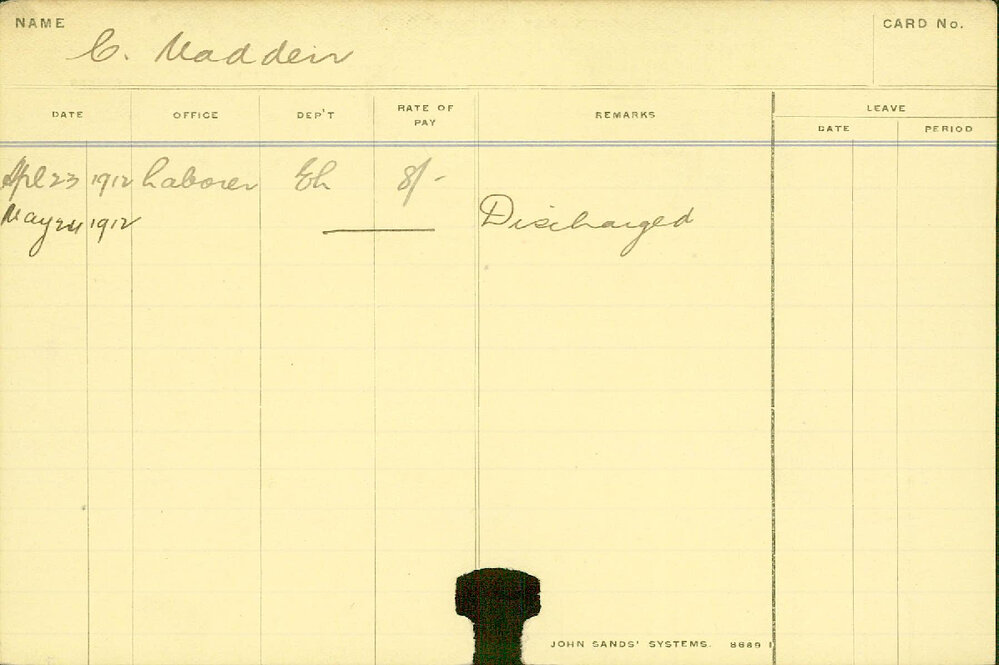 NAME
C. Madden
CARD No.
DATE OFFICE DEP'T RATE OF PAY REMARKS LEAVE
DATE PERIOD
Apl 23 1912 Laborer Eh 8/-
May 24 1912 Discharged
JOHN SANDS' SYSTEMS. 8689